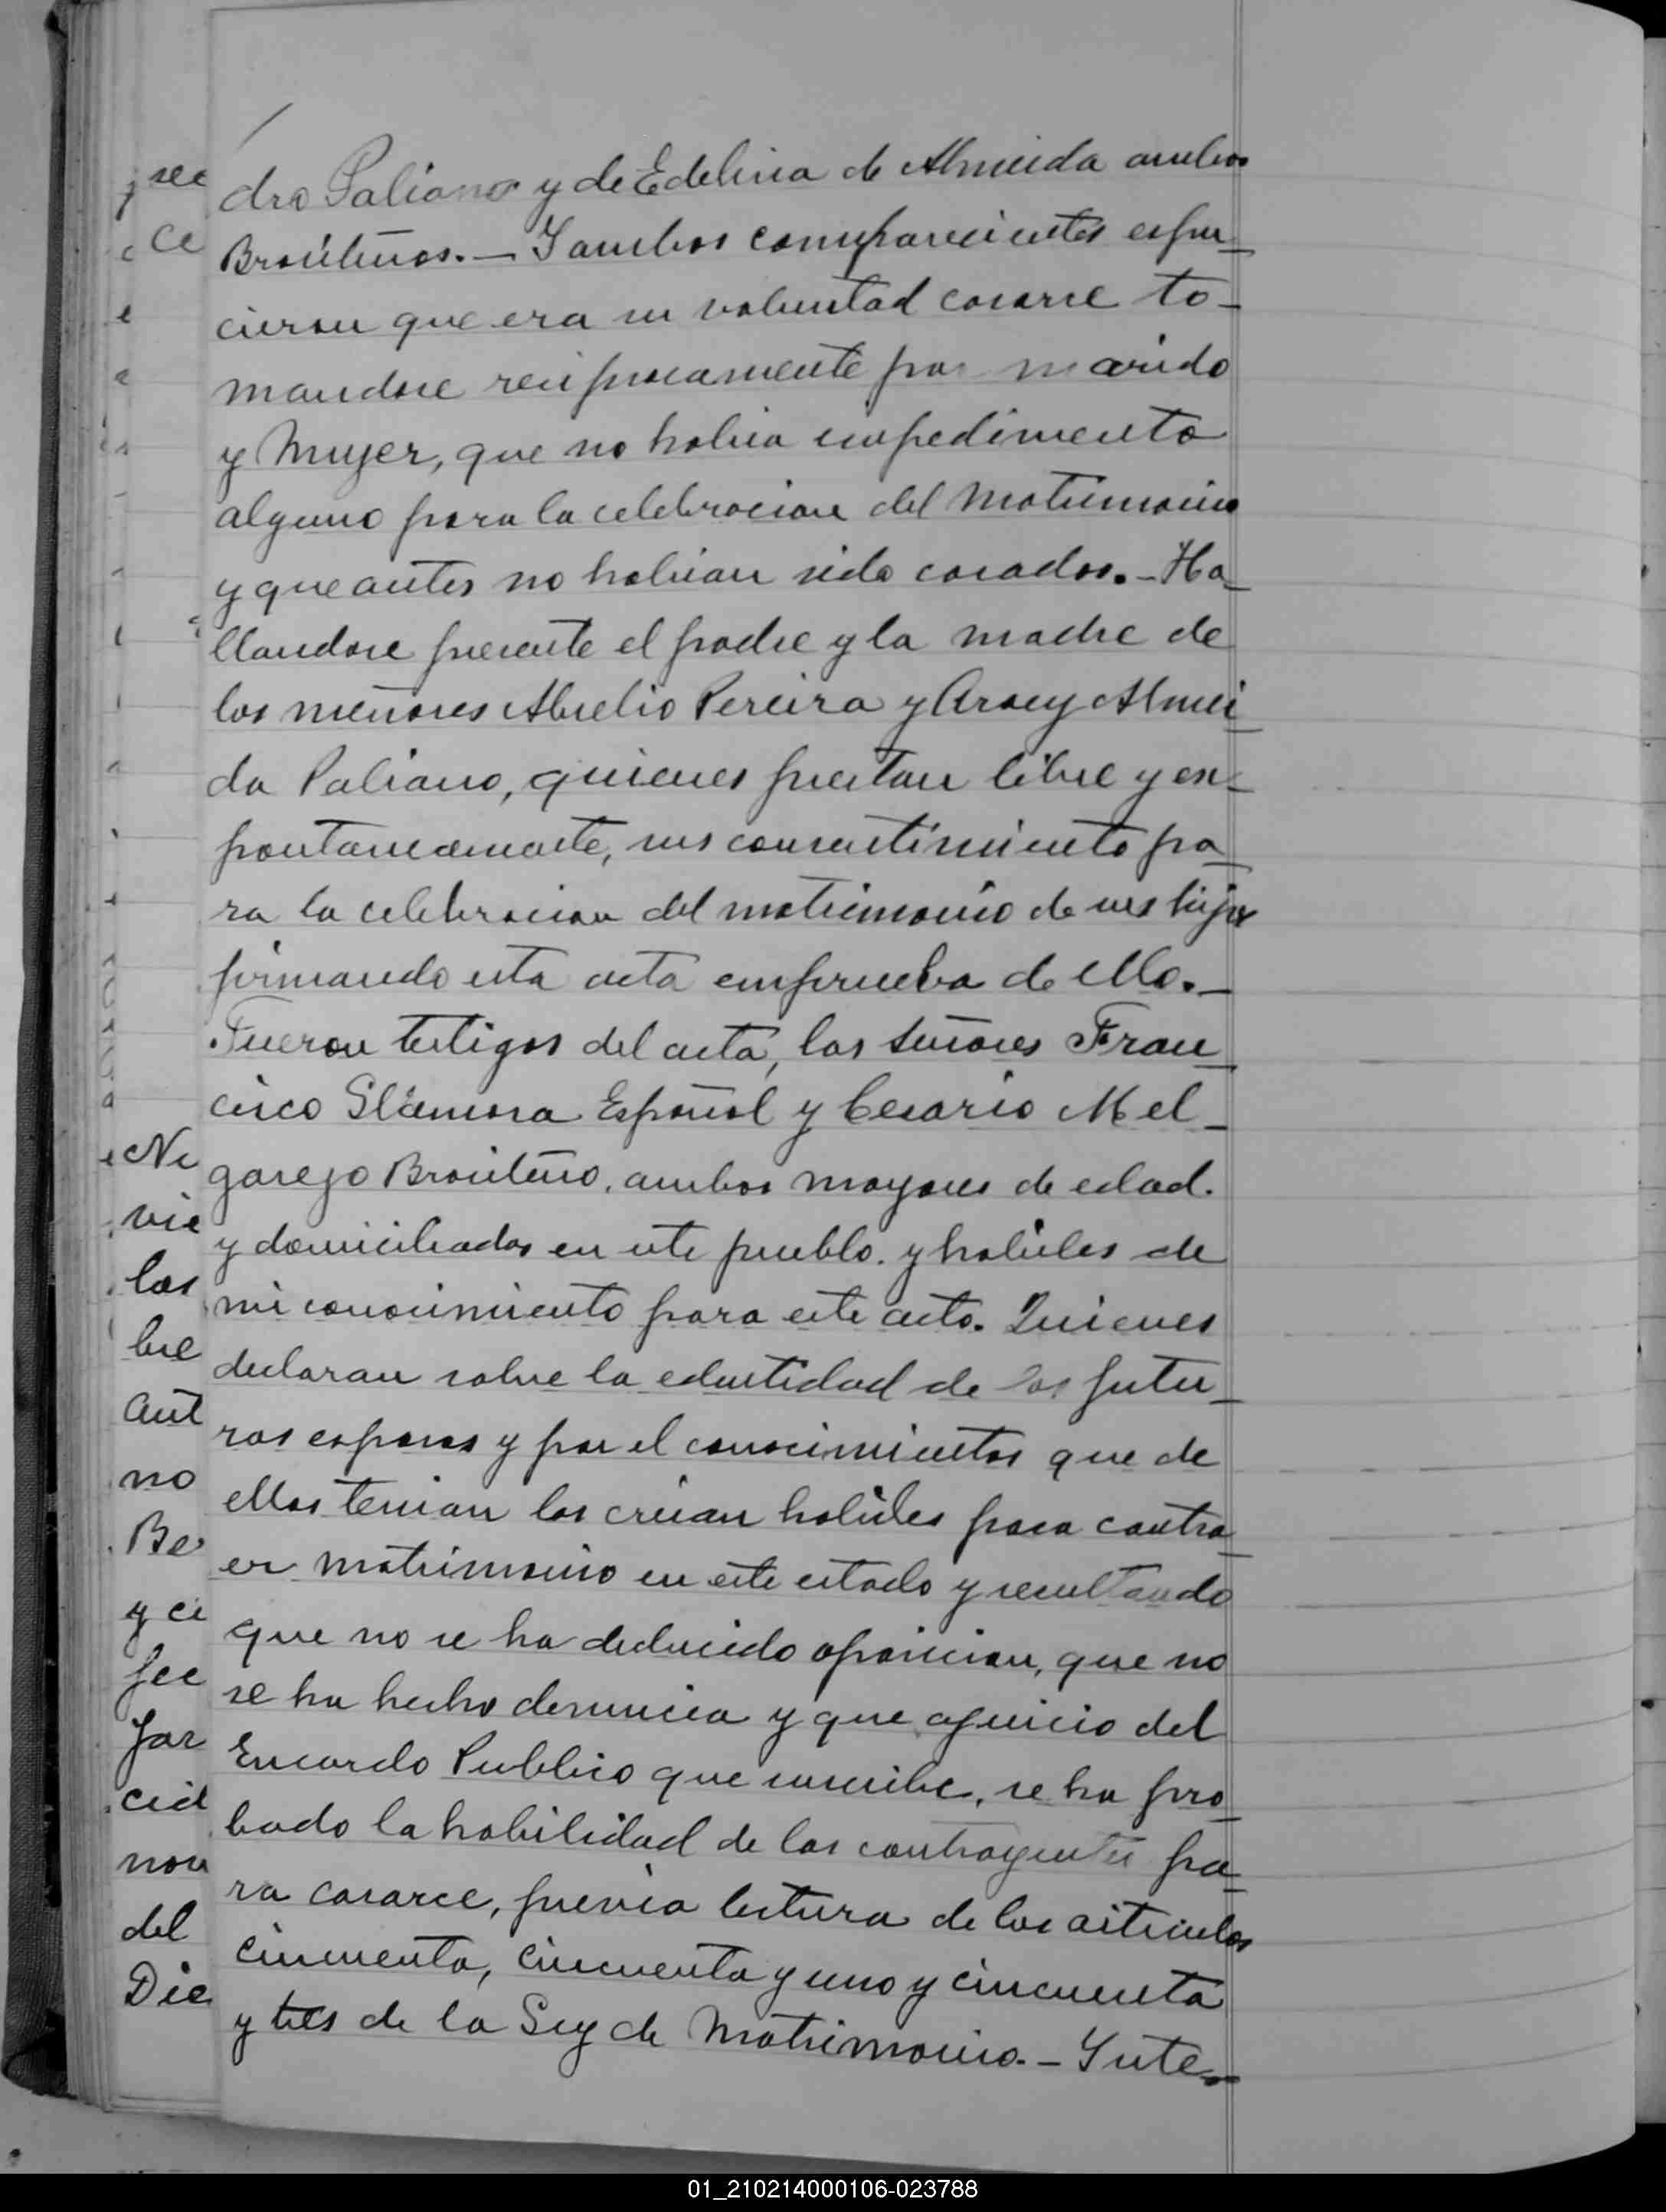 dro Paliano y de Edelina de Almeida ambos
Brasileños. — Y ambos comparecientes espu-
cieron que era su voluntad casarse to-
mandose reciprocamente por marido
y Mujer, que no habia impedimento
alguno para la celebracion del Matrimonio
y que antes no habian sido casados. - Ha-
llandose presente el padre y la madre de
los menores Abrelio Pereira y Aracy Almei-
da Paliano, quienes prestan libre y es-
pontaneamente, sus consentimiento pa-
ra la celebracion del matrimonio de sus hijos
firmando esta acta en prueba de ello. —
Fueron testigos del acta, los señores Fran-
cisco Español y Cesario Mel-
garejo Brasileño, ambos mayores de edad.
y domiciliados en este pueblo. y habiles de
mi conocimiento para este acto. Quienes
declaran sobre la edentidad de los futu-
ros esposos y por el conocimientos que de
ellos tenian los creian habiles para contra-
er matrimonio en este estado y resultando
que no se ha deducido oposicion, que no
se ha hecho denuncia y que ajuicio del
Encardo Publico que suscribe, se ha pro-
bado la habilidad de los contrayentes pa-
ra casarce, previa lectura de los articulos
cincuenta, cincuenta y uno y cincuenta
y tres de la Ley de Matrimonio. — Y nte-
see
Ce
Ne
vie
los
bre
Ant
no
Be
y ci
fee
Jar
cid
nou
del
Die
01_210214000106-023788